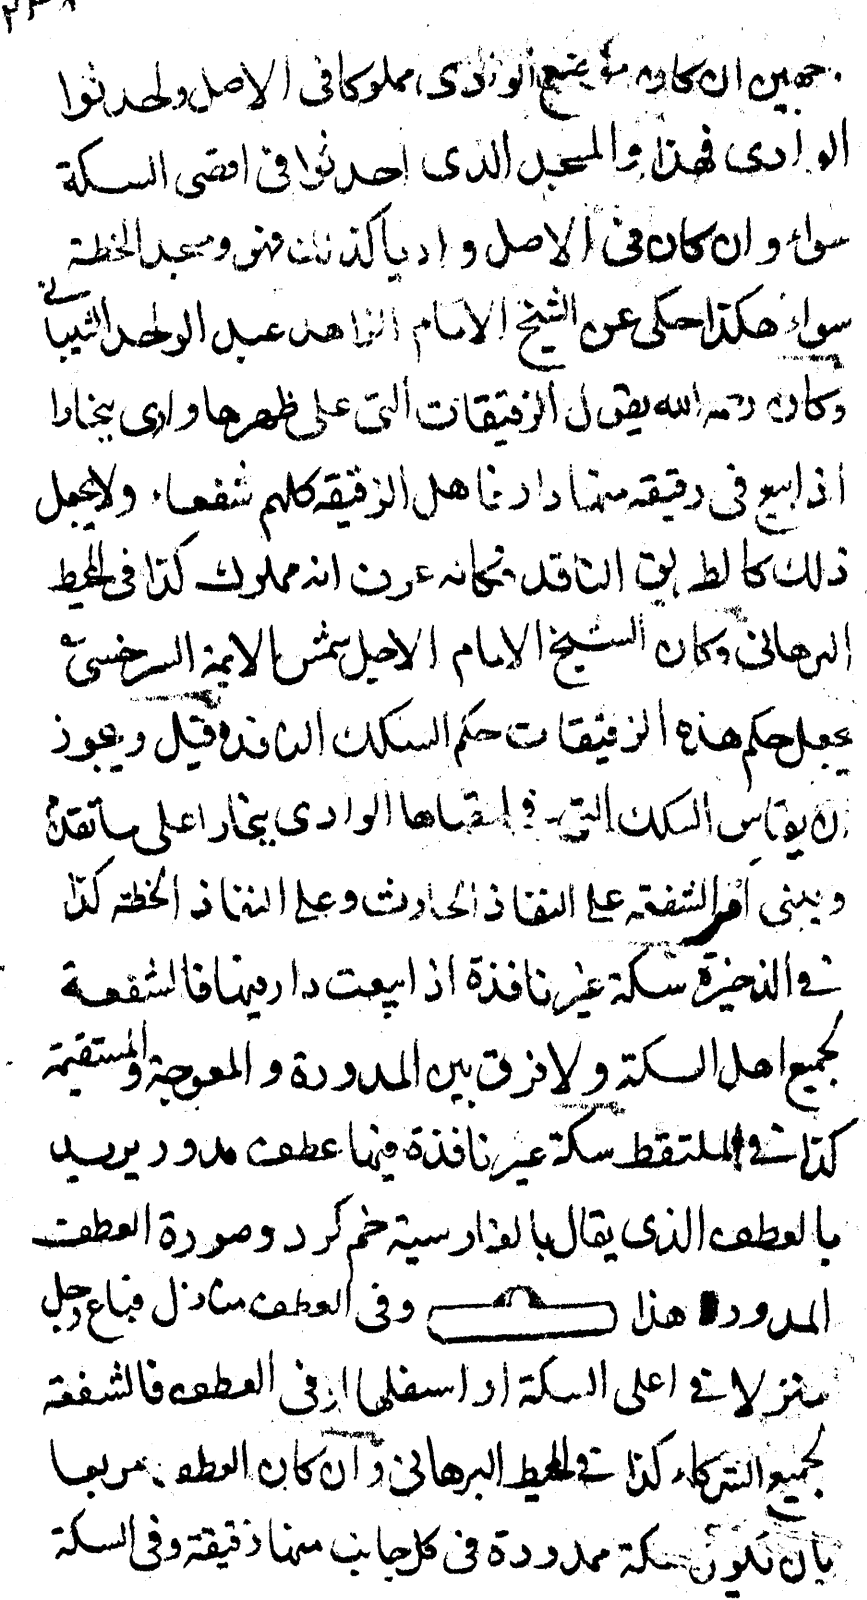 ٢٣٨
جهين ان كان موضع الوادى مملوكا فى الاصل واحدثوا
الوادى فهذا والمسجد الذى احدثوا فى اقصى السكة
سواء وان كان فى الاصل واديا كذلك فهو ومسجد الخطة
سواء هكذا حكى عن الشيخ الامام الزاهد عبد الواحد الشيبانى
وكان رحمه الله يقول الزقيقات التى على ظهرها وادى بخارا
اذا بيع فى زقيقه منها دار فاهل الزقيقه كلهم شفعاء ولا يجعل
ذلك كالطريق النافذ فكانه عرف انه مملوك كذا فى المحيط
البرهانى وكان الشيخ الامام الاجل شمس الايمة السرخسى
يجعل حكم هذه الزقيقات حكم السكك النافذه وقيل ويجوز
ان يقاس السكك التى فى اقصاها الوادى بخارا على ما تقدم
ويبنى امر الشفعه على النفاذ الحادث وعلى النفاذ الخطة كذا
فى الذخيرة سكة غير نافذة اذا بيعت دار فيها فالشفعة
لجميع اهل السكة ولا فرق بين المدورة والمعوجة والمستقيمة
كذا فى الملتقط سكة غير نافذة فيها عطف مدور يريد
بالعطف الذى يقال بالفارسية خم كرد وصورة العطف
المدور هذا وفى العطف منازل فباع رجل
منزلا فى اعلى السكة او اسفلها او فى العطف فالشفعة
لجميع الشركاء كذا فى المحيط البرهانى وان كان العطف مربعا
بان تكون سكة ممدودة فى كل جانب منها زقيقة وفى السكة